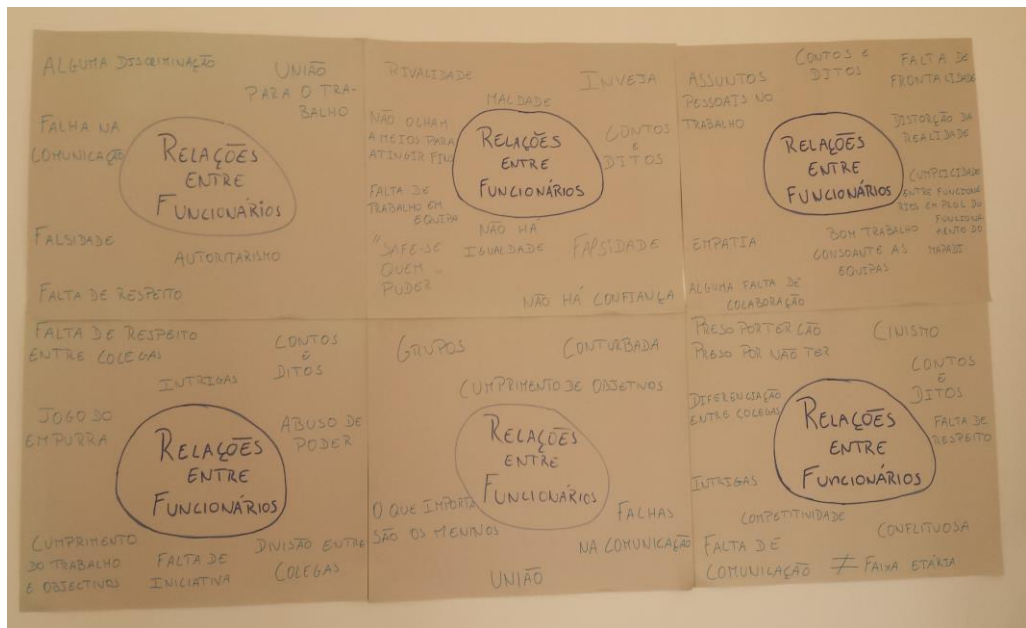 ALGUMA DISCRIMINAÇÃO
UNIÃO
PARA O TRA-
BALHO
FALHA NA
COMUNICAÇÃO
RELAÇÕES
ENTRE
FUNCIONÁRIOS
FALSIDADE
AUTORITARISMO
FALTA DE RESPEITO
RIVALIDADE
INVEJA
MALDADE
NÃO OLHAM
A MEIOS PARA
ATINGIR FINS
RELAÇÕES
ENTRE
FUNCIONÁRIOS
CONTOS
E
DITOS
FALTA DE
TRABALHO EM
EQUIPA
NÃO HÁ
IGUALDADE
"SAFE-SE
QUEM
PUDER"
FALSIDADE
NÃO HÁ CONFIANÇA
ASSUNTOS
PESSOAIS NO
TRABALHO
CONTOS E
DITOS
FALTA DE
FRONTALIDADE
DISTORÇÃO DA
REALIDADE
RELAÇÕES
ENTRE
FUNCIONÁRIOS
CUMPLICIDADE
ENTRE FUNCIONÁ-
RIOS EM PROL DO
FUNCIONA-
MENTO DO
MAPADI
EMPATIA
BOM TRABALHO
CONSOANTE AS
EQUIPAS
ALGUMA FALTA DE
COLABORAÇÃO
FALTA DE RESPEITO
ENTRE COLEGAS
CONTOS
E
DITOS
INTRIGAS
JOGO DO
EMPURRA
RELAÇÕES
ENTRE
FUNCIONÁRIOS
ABUSO DE
PODER
CUMPRIMENTO
DO TRABALHO
E OBJECTIVOS
FALTA DE
INICIATIVA
DIVISÃO ENTRE
COLEGAS
GRUPOS
CONTURBADA
CUMPRIMENTO DE OBJETIVOS
RELAÇÕES
ENTRE
FUNCIONÁRIOS
O QUE IMPORTA
SÃO OS MENINOS
FALHAS
NA COMUNICAÇÃO
UNIÃO
PRESO POR TER CÃO
PRESO POR NÃO TER
CINISMO
CONTOS
E
DITOS
DIFERENCIAÇÃO
ENTRE COLEGAS
RELAÇÕES
ENTRE
FUNCIONÁRIOS
FALTA DE
RESPEITO
INTRIGAS
COMPETITIVIDADE
CONFLITUOSA
FALTA DE
COMUNICAÇÃO
≠ FAIXA ETÁRIA